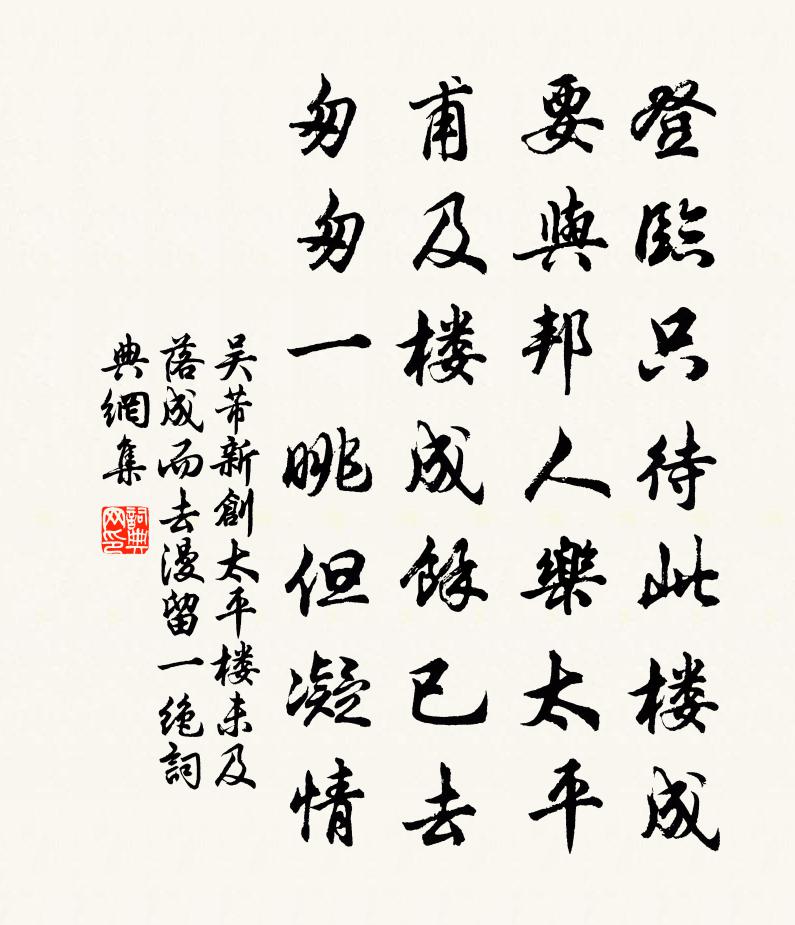 登臨只待此楼成
要與邦人樂太平
甫及楼成餘已去
匆匆一眺但凝情
吴芾新創太平楼未及
落成而去漫留一绝詞
典網集
詞典
网印